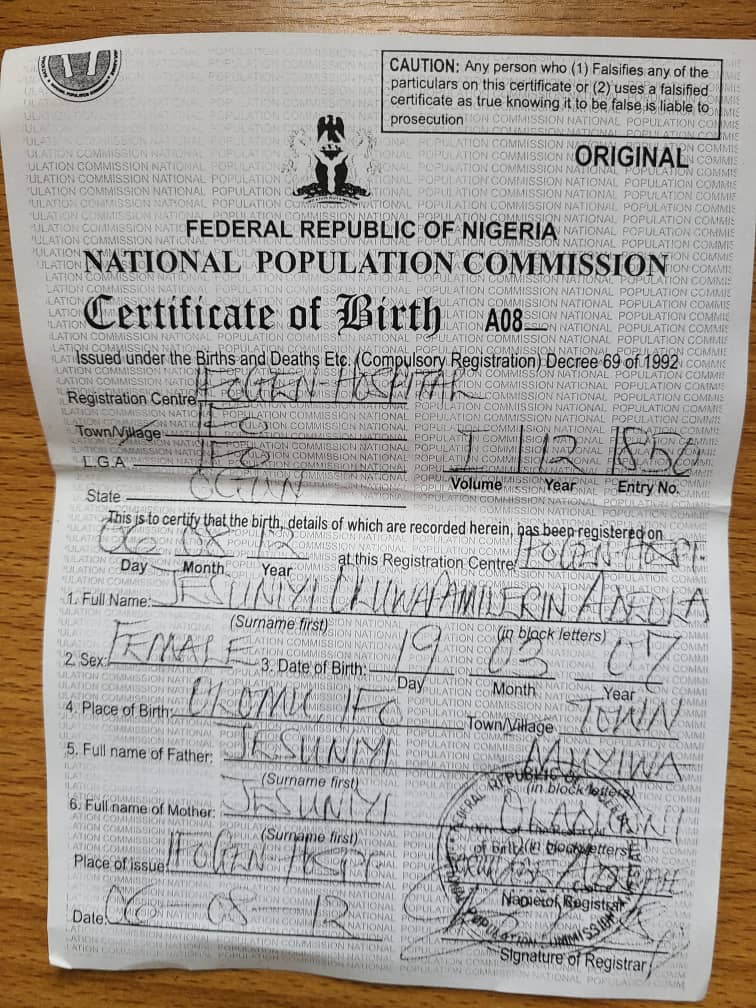 CAUTION: Any person who (1) Falsifies any of the
particulars on this certificate or (2) uses a falsified
certificate as true knowing it to be false is liable to
prosecution
ORIGINAL
FEDERAL REPUBLIC OF NIGERIA
NATIONAL POPULATION COMMISSION
Certificate of Birth A08
Issued under the Births and Deaths Etc. (Compulsory Registration) Decree 69 of 1992
Registration Centre IFOGEN-HOSPITAL
Town/Village IFO
L.G.A IFO
I 12 1850
Volume Year Entry No.
State OGUN
This is to certify that the birth, details of which are recorded herein, has been registered on
06 08 12 at this Registration Centre IFOGEN-HOSPT
Day Month Year
1. Full Name: JESUNIYI OLUWAPAMILERIN ADEOLA
(Surname first) (in block letters)
2. Sex: FEMALE 3. Date of Birth: 19 03 07
Day Month Year
4. Place of Birth: IFO Town/Village TOWN
5. Full name of Father: JESUNIYI MUYIWA
(Surname first) (in block letters)
6. Full name of Mother: JESUNIYI
(Surname first) (in block letters)
Place of issue IFOGEN-HOSPT
Name of Registrar
Date: 06-08-12
Signature of Registrar